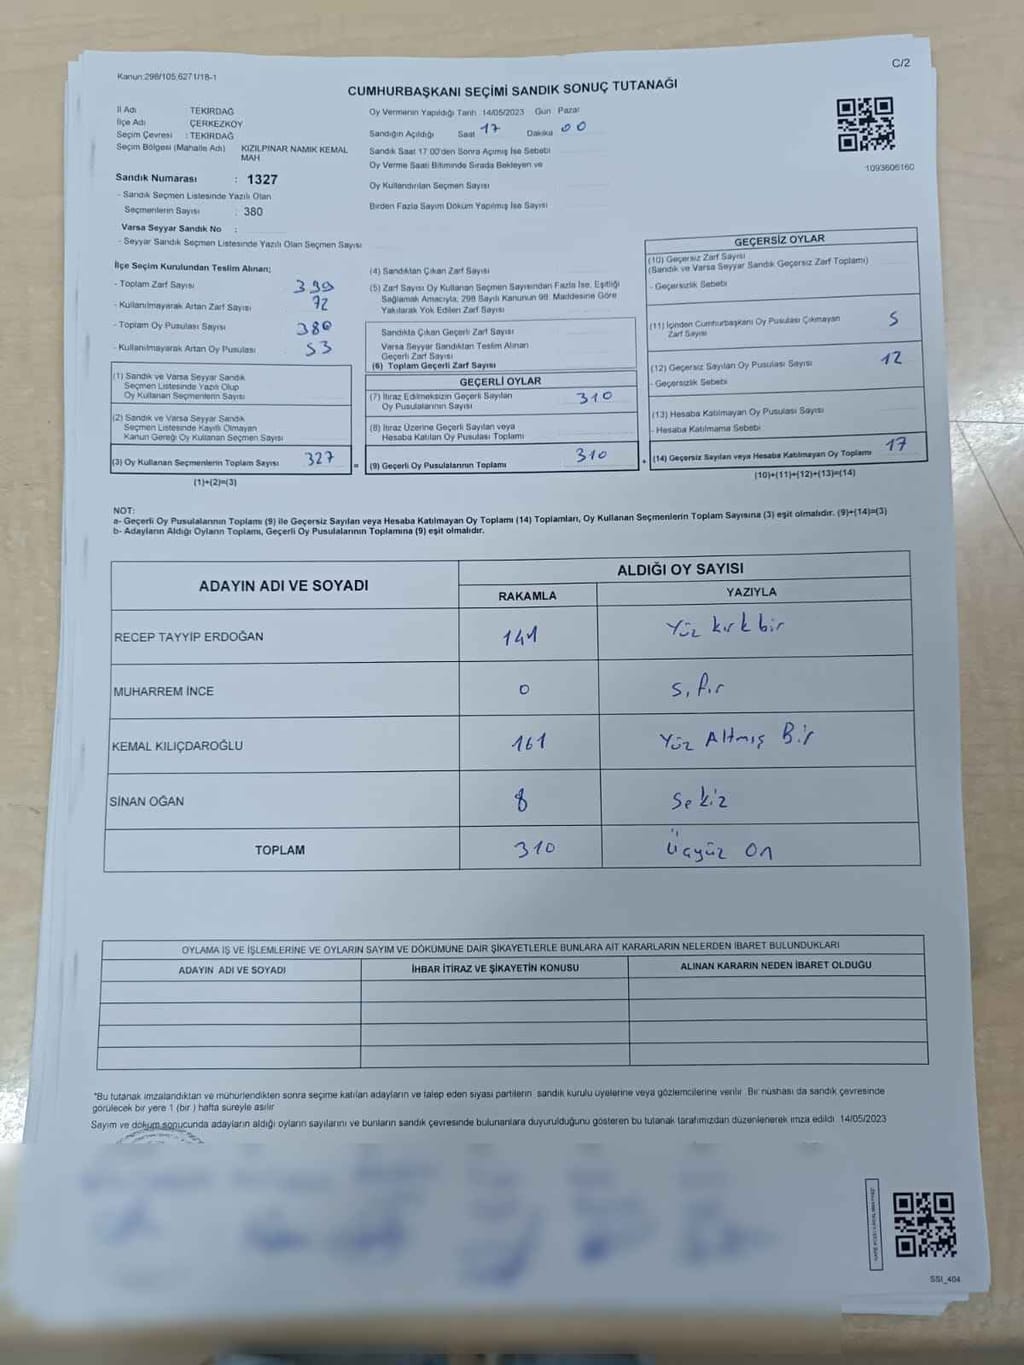 Kanun:298/105,6271/18-1
C/2
CUMHURBAŞKANI SEÇİMİ SANDIK SONUÇ TUTANAĞI
İl Adı TEKİRDAĞ
İlçe Adı ÇERKEZKÖY
Seçim Çevresi : TEKİRDAĞ
Seçim Bölgesi (Mahalle Adı) KIZILPINAR NAMIK KEMAL MAH
Sandık Numarası : 1327
- Sandık Seçmen Listesinde Yazılı Olan
Seçmenlerin Sayısı : 380
Varsa Seyyar Sandık No :
- Seyyar Sandık Seçmen Listesinde Yazılı Olan Seçmen Sayısı
Oy Vermenin Yapıldığı Tarih 14/05/2023 Gün Pazar
Sandığın Açıldığı Saat 17 Dakika 00
Sandık Saat 17.00'den Sonra Açılmış İse Sebebi
Oy Verme Saati Bitiminde Sırada Bekleyen ve
Oy Kullandırılan Seçmen Sayısı
Birden Fazla Sayım Döküm Yapılmış İse Sayısı
1093606160
İlçe Seçim Kurulundan Teslim Alınan;
- Toplam Zarf Sayısı 399
- Kullanılmayarak Artan Zarf Sayısı 72
- Toplam Oy Pusulası Sayısı 380
- Kullanılmayarak Artan Oy Pusulası 53
(1) Sandık ve Varsa Seyyar Sandık
Seçmen Listesinde Yazılı Olup
Oy Kullanan Seçmenlerin Sayısı
(2) Sandık ve Varsa Seyyar Sandık
Seçmen Listesinde Kayıtlı Olmayan
Kanun Gereği Oy Kullanan Seçmen Sayısı
(3) Oy Kullanan Seçmenlerin Toplam Sayısı 327
(1)+(2)=(3)
(4) Sandıktan Çıkan Zarf Sayısı
(5) Zarf Sayısı Oy Kullanan Seçmen Sayısından Fazla İse, Eşitliği
Sağlamak Amacıyla, 298 Sayılı Kanunun 98. Maddesine Göre
Yakılarak Yok Edilen Zarf Sayısı
Sandıkta Çıkan Geçerli Zarf Sayısı
Varsa Seyyar Sandıktan Teslim Alınan
Geçerli Zarf Sayısı
(6) Toplam Geçerli Zarf Sayısı
GEÇERLİ OYLAR
(7) İtiraz Edilmeksizin Geçerli Sayılan
Oy Pusulalarının Sayısı 310
(8) İtiraz Üzerine Geçerli Sayılan veya
Hesaba Katılan Oy Pusulası Toplamı
= (9) Geçerli Oy Pusulalarının Toplamı 310
GEÇERSİZ OYLAR
(10) Geçersiz Zarf Sayısı
(Sandık ve Varsa Seyyar Sandık Geçersiz Zarf Toplamı)
- Geçersizlik Sebebi
(11) İçinden Cumhurbaşkanı Oy Pusulası Çıkmayan
Zarf Sayısı 5
(12) Geçersiz Sayılan Oy Pusulası Sayısı 12
- Geçersizlik Sebebi
(13) Hesaba Katılmayan Oy Pusulası Sayısı
- Hesaba Katılmama Sebebi
+ (14) Geçersiz Sayılan veya Hesaba Katılmayan Oy Toplamı 17
(10)+(11)+(12)+(13)=(14)
NOT:
a- Geçerli Oy Pusulalarının Toplamı (9) ile Geçersiz Sayılan veya Hesaba Katılmayan Oy Toplamı (14) Toplamları, Oy Kullanan Seçmenlerin Toplam Sayısına (3) eşit olmalıdır. (9)+(14)=(3)
b- Adayların Aldığı Oyların Toplamı, Geçerli Oy Pusulalarının Toplamına (9) eşit olmalıdır.
ADAYIN ADI VE SOYADI ALDIĞI OY SAYISI
RAKAMLA YAZIYLA
RECEP TAYYİP ERDOĞAN 141 Yüz kırk bir
MUHARREM İNCE 0 Sıfır
KEMAL KILIÇDAROĞLU 161 Yüz Altmış Bir
SİNAN OĞAN 8 Sekiz
TOPLAM 310 Üçyüz On
OYLAMA İŞ VE İŞLEMLERİNE VE OYLARIN SAYIM VE DÖKÜMÜNE DAİR ŞİKAYETLERLE BUNLARA AİT KARARLARIN NELERDEN İBARET BULUNDUKLARI
ADAYIN ADI VE SOYADI İHBAR İTİRAZ VE ŞİKAYETİN KONUSU ALINAN KARARIN NEDEN İBARET OLDUĞU
*Bu tutanak imzalandıktan ve mühürlendikten sonra seçime katılan adayların ve talep eden siyasi partilerin sandık kurulu üyelerine veya gözlemcilerine verilir. Bir nüshası da sandık çevresinde
görülecek bir yere 1 (bir) hafta süreyle asılır
Sayım ve döküm sonucunda adayların aldığı oyların sayılarını ve bunların sandık çevresinde bulunanlara duyurulduğunu gösteren bu tutanak tarafımızdan düzenlenerek imza edildi 14/05/2023
SSI_404